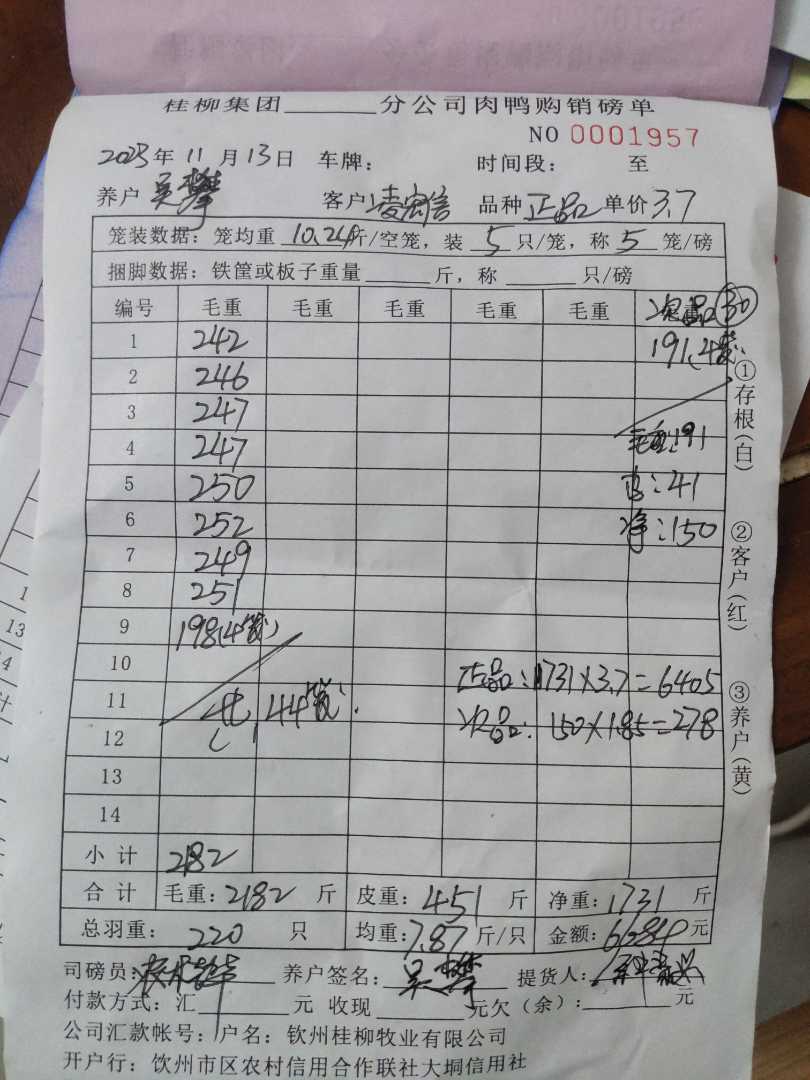 桂柳集团______分公司肉鸭购销磅单
NO 0001957
2023年11月13日 车牌: 时间段: 至
养户 吴攀 客户 凌宏信 品种 正品 单价 3.7
笼装数据: 笼均重 10.24斤/空笼, 装 5 只/笼, 称 5 笼/磅
捆脚数据: 铁筐或板子重量______斤, 称______只/磅
编号 毛重 毛重 毛重 毛重 毛重 次品 30
1 242 191(4笼)
2 246
3 247
4 247 毛重:191
5 250 皮:41
6 252 净:150
7 249
8 251
9 198(4笼)
10 正品:1731×3.7=6405
11 44笼
12 次品: 150×1.85=278
13
14
小计 2182
合计 毛重: 2182 斤 皮重: 451 斤 净重: 1731 斤
总羽重: 220 只 均重: 7.87 斤/只 金额: 6684 元
司磅员: 养户签名: 吴攀 提货人:
付款方式: 汇______元 收现______元欠(余):______元
公司汇款帐号: 户名: 钦州桂柳牧业有限公司
开户行: 钦州市区农村信用合作联社大垌信用社
①存根(白)
②客户(红)
③养户(黄)